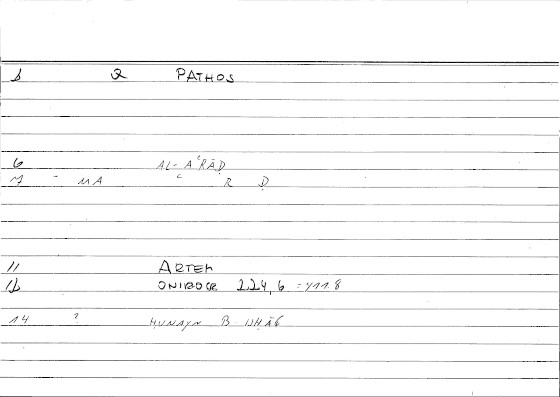 1 2 PATHOS
6 AL-AʿRĀḌ
7 - MA ʿ R Ḍ
11 ARTEM
12 ONIROCR 224,6 = 411.8
14 ? ḤUNAYN B ISḤĀQ